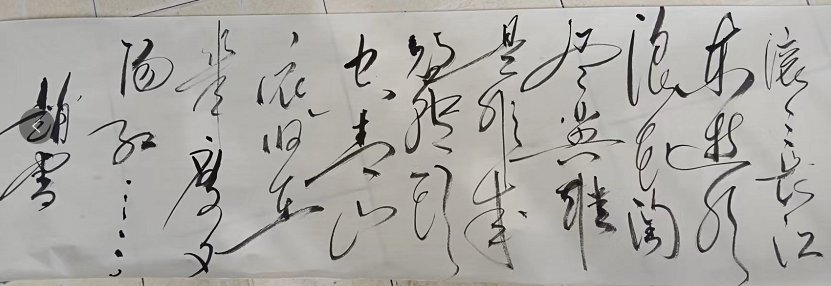 滚〻长江
东逝水
浪花淘
尽英雄
是非成
败转头
空青山
依旧在
幾度夕
阳红……
書